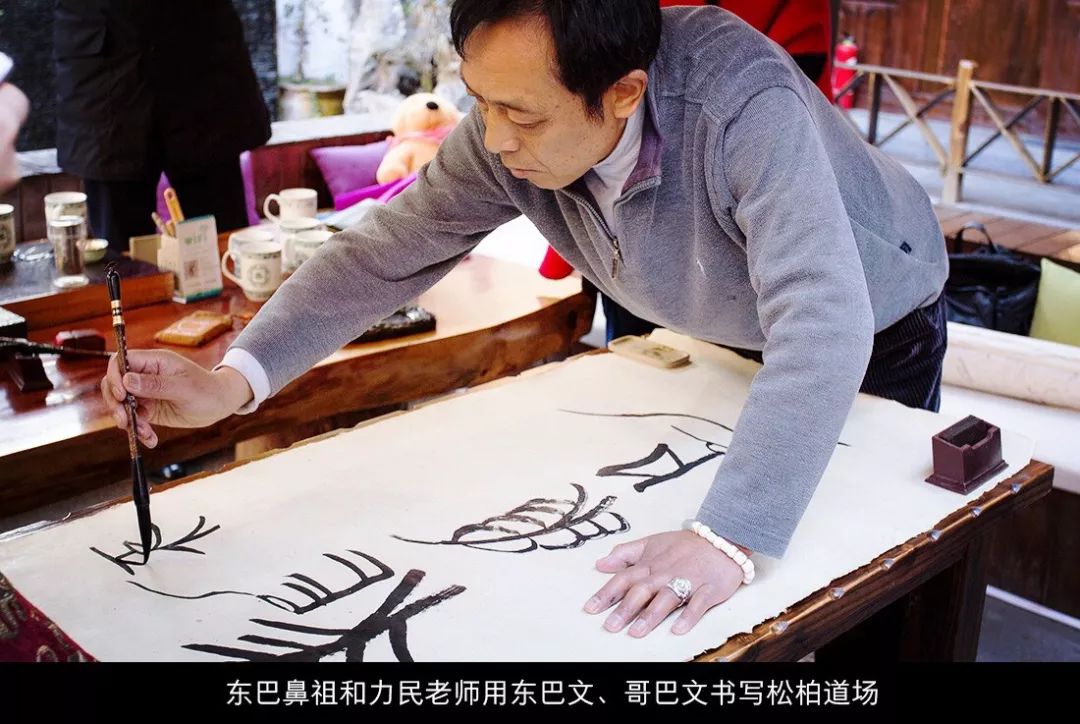 东巴鼻祖和力民老师用东巴文、哥巴文书写松柏道场